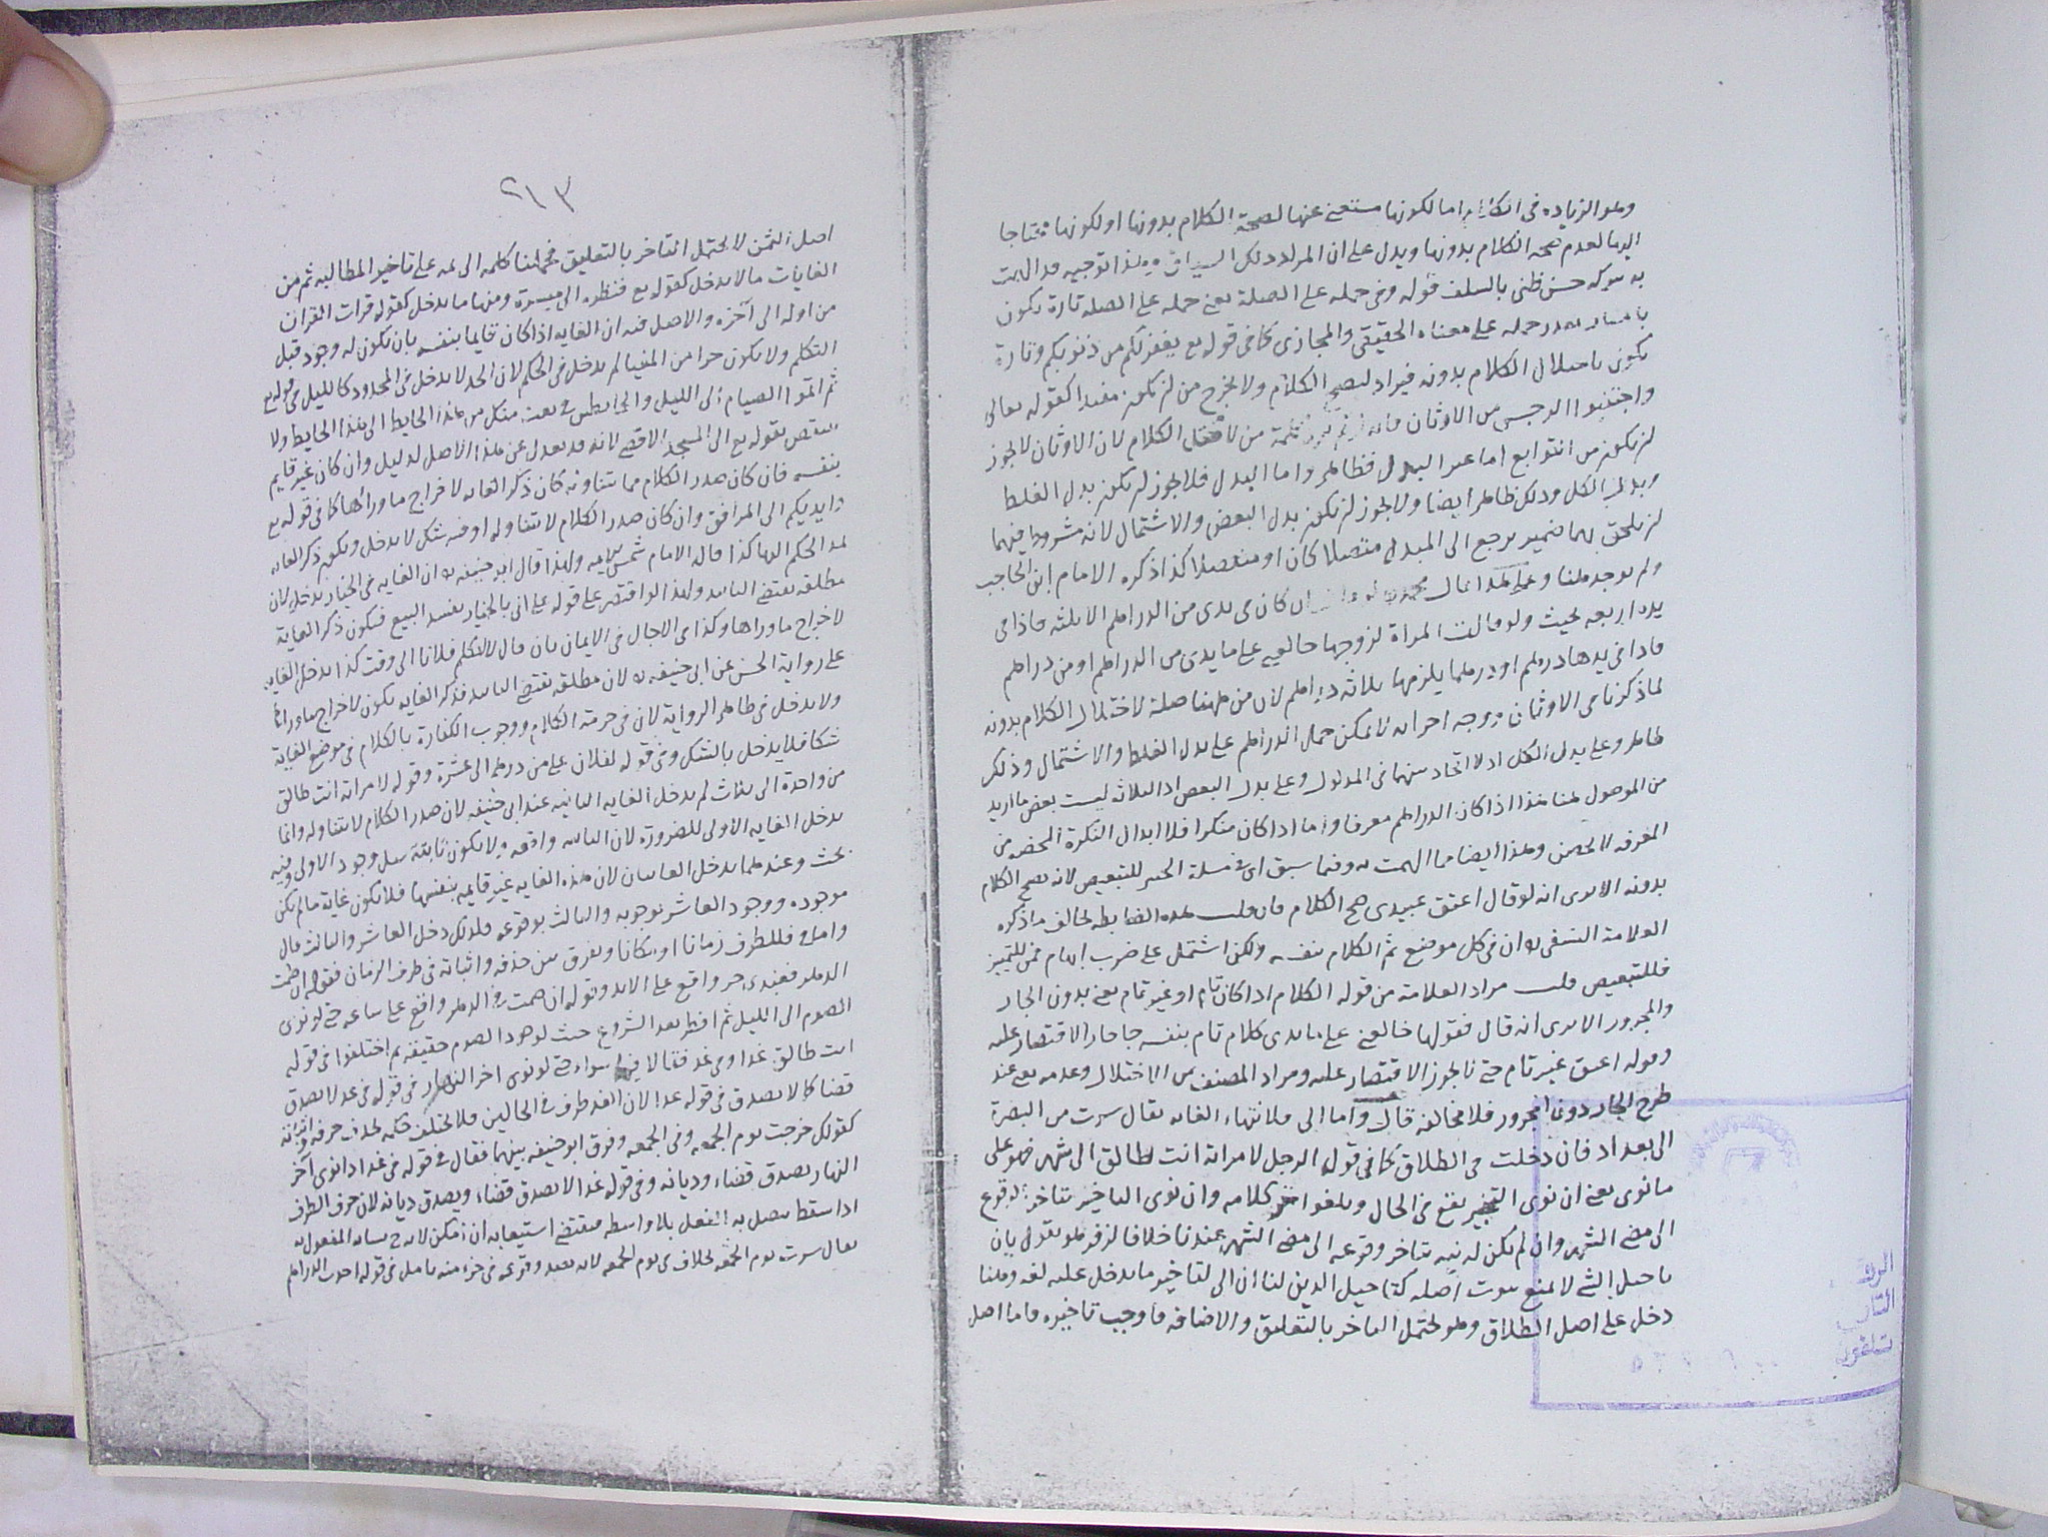 وهو الزياده في الكلام اما لكونها مستغنى عنها لصحة الكلام بدونها او لكونها محتاجا
اليها لعدم صحه الكلام بدونها ويدل على ان المراد ذلك السياق وهذا توجيه قد الهمت
به ببركه حسن ظني بالسلف قوله وفي حمله على الصلة يعني حمله على الصله تارة يكون
حمله على معناه الحقيقي والمجازى كما في قوله تع يغفر لكم من ذنوبكم وتارة
يكون باختلال الكلام بدونه فيراد ليصح الكلام ولا يخرج من ان يكون مفيدا كقوله تعالى
واجتنبوا الرجس من الاوثان كلمة من لاختل الكلام لان الاوثان لا يجوز
ان يكون من التوابع اما غير البدل فظاهر واما البدل فلا يجوز ان يكون بدل الغلط
وبدل الكل وذلك ظاهر ايضا ولا يجوز ان يكون بدل البعض والاشتمال لانه مشروط فيهما
ان يلحق بهما ضمير يرجع الى المبدل متصلا كان او منفصلا كذا ذكره الامام ابن الحاجب
ولم يوجد هنا وعلى هذا قال محمد ان كان في يدى من الدراهم الا ثلثه فاذا في
يده اربعه يحنث ولو قالت المرأة لزوجها خالعني على ما يدى من الدراهم او من دراهم
فاذا في يدها درهم او درهما يلزمها ثلاثه دراهم لان من ههنا صلة لاختلال الكلام بدونه
لما ذكرنا في الاوثان ووجه اخر انه لا يمكن حمل الدراهم على بدل الغلط والاشتمال وذلك
ظاهر وعلى بدل الكل اذ لا اتحاد بينهما في المدلول وعلى بدل البعض اذ الثلاثه ليست بعض ما اريد
من الموصول هنا هذا اذا كان الدراهم معرفا واما اذا كان منكرا فلا ابدال النكرة المحضه من
المعرفه لا يحسن وهذا ايضا مما الهمت به وفيما سبق اى في مسئلة العبيد للتبعيض لانه يصح الكلام
بدونه الا يرى انه لو قال اعتق عبيدى صح الكلام فان قلت هذه الضابطه تخالف ما ذكره
العلامة النسفي ره ان في كل موضع تم الكلام بنفسه ولكن اشتمل على ضرب ابهام فمن للتمييز
فللتبعيض قلت مراد العلامة من قوله الكلام اذا كان تام او غير تمام يعني بدون الجار
والمجرور الا يرى انه قال فقولها خالعني على ما يدى كلام تام بنفسه جاز الاقتصار عليه
وقوله اعتق غير تام حتى لا يجوز الاقتصار عليه ومراد المصنف من الاختلال وعدمه يعني عند
طرح الجار دون المجرور فلا مخالفه قال واما الى فلانتهاء الغايه يقال سرت من البصرة
الى بغداد فان دخلت في الطلاق كما في قول الرجل لامراته انت طالق الى شهر فهو على
ما نوى يعني ان نوى التنجيز يقع في الحال ويلغوا اخر كلامه وان نوى التاخير يتاخر الوقوع
الى مضى الشهر وان لم يكن له نيه يتاخر وقوعه الى مضى الشهر عندنا خلافا لزفر هو يقول بان
تاجيل الشى لا يمنع ثبوت اصله كتاجيل الدين لنا ان الى لتاخير ما يدخل عليه لغه وهنا
دخل على اصل الطلاق وهو يحتمل التاخر بالتعليق والاضافه فاوجب تاخيره واما اصل
٢١٣
اصل الثمن لا يحتمل التاخر بالتعليق فحملنا كلمه الى ثمه على تاخير المطالبه ثم من
الغايات ما لا يدخل كقوله تع فنظره الى ميسرة ومنها ما يدخل كقوله قرات القران
من اوله الى آخره والاصل فيه ان الغايه اذا كان قايما بنفسه بان يكون له وجود قبل
التكلم ولا يكون جزا من المغيا لم يدخل في الحكم لان الحد لا يدخل في المحدود كالليل في قوله تع
ثم اتموا الصيام الى الليل والحايطين في بعت منك من هذا الحايط الى هذا الحايط ولا
ينتقض بقوله تع الى المسجد الاقصى لانه قد يعدل عن هذا الاصل لدليل وان كان غير قايم
بنفسه فان كان صدر الكلام مما يتناوله كان ذكر الغايه لاخراج ما وراها كما في قوله تع
وايديكم الى المرافق وان كان صدر الكلام لا يتناوله او فيه شك لا يدخل ويكون ذكر الغايه
لمد الحكم اليها كذا قاله الامام شمس الايمه ولهذا قال ابو حنيفه ره ان الغايه في الخيار يدخل لان
مطلقه يقتضى التابيد ولهذا لو اقتصر على قوله على انى بالخيار يفسد البيع فيكون ذكر الغاية
لاخراج ما وراها وكذا في الاجال في الايمان بان قال لا اكلم فلانا الى وقت كذا يدخل الغايه
على رواية الحسن عن ابى حنيفه ره لان مطلقه يقتضى التابيد فذكر الغايه يكون لاخراج ما وراها
ولا يدخل في ظاهر الرواية لان في حرمة الكلام ووجوب الكفارة بالكلام في موضع الغاية
شكا فلا يدخل بالشك وفي قوله لفلان على من درهم الى عشرة وقوله لامراته انت طالق
من واحدة الى ثلاث لم يدخل الغايه الثانيه عند ابى حنيفه لان صدر الكلام لا يتناوله وانما
يدخل الغايه الاولى للضرورة لان الثانيه واقعه ولا يكون ثابتة قبل وجود الاولى وفيه
بحث وعندهما يدخل الغايتان لان هذه الغايه غير قايمه بنفسها فلا يكون غاية ما لم يكن
موجوده ووجود العاشر بوجوبه والثالث بوقوعه فلذلك دخل العاشر والثالث قال
واما في فللظرف زمانا او مكانا ويفرق بين حذفه واثباته في ظرف الزمان فقوله ان صمت
الدهر فعبدى حر واقع على الابد وقوله ان صمت في الدهر واقع على ساعه حتى لو نوى
الصوم الى الليل ثم افطر بعد الشروع حنث لوجود الصوم حقيقه ثم اختلفوا في قوله
انت طالق غدا وفي غد فقالا هما سواء حتى لو نوى اخر النهار في قوله في غد لا يصدق
قضا كما لا يصدق في قوله غدا لان الغد ظرف في الحالين فلا يختلف حكمه بحذف حرفه واثباته
كقولك خرجت يوم الجمعه وفي الجمعه وفرق ابو حنيفه بينهما فقال في قوله في غد اذا نوى آخر
النهار يصدق قضاء وديانه وفي قوله غدا لا يصدق قضاء ويصدق ديانه لان حرف الظرف
اذا سقط يتصل به الفعل بلا واسطه فيقتضى استيعابه ان امكن لانه ح شابه المفعول به
يقال سرت يوم الجمعه بخلاف في يوم الجمعه لانه يفيد وقوعه في جزء منه تامل في قوله اخوت الدراهم